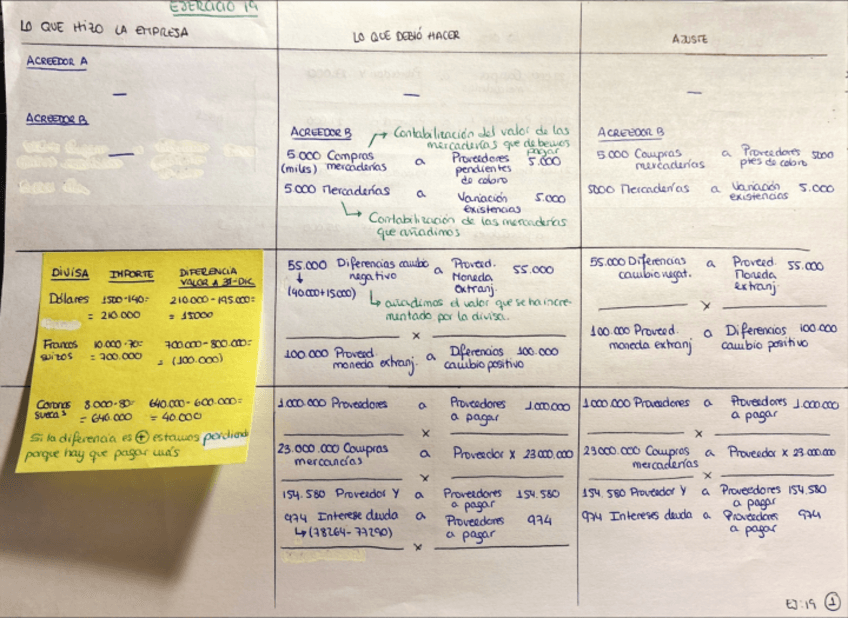 EJERCICIO 19
LO QUE HIZO LA EMPRESA
ACREEDOR A
—
ACREEDOR B
—
LO QUE DEBIÓ HACER
—
ACREEDOR B
Contabilización del valor de las
mercaderías que debemos
pagar
5.000 Compras a Proveedores 5.000
(miles) mercaderías pendientes
de coloro
5000 Mercaderías a Variación 5.000
existencias
Contabilización de las mercaderías
que añadimos
AJUSTE
—
ACREEDOR B
5000 Compras a Proveedores 5000
mercaderías ptes de coloro
5000 Mercaderías a Variación 5.000
existencias
DIVISA IMPORTE DIFERENCIA
VALOR A 31-DIC.
Dólares 1500·140= 210.000-195.000=
= 210.000 = 15000
Francos 10.000·70= 700.000-800.000=
suizos = 700.000 = (100.000)
Coronas 8.000·80= 640.000-600.000=
suecas = 640.000 = 40.000
Si la diferencia es + estamos perdiendo
porque hay que pagar más
55.000 Diferencias cambio a Proveed. 55.000
negativo Moneda
extranj.
(40.000+15.000)
añadimos el valor que se ha incre-
mentado por la divisa.
x
100.000 Proveed. a Diferencias 100.000
moneda extranj. cambio positivo
55.000 Diferencias a Proveed. 55.000
cambio negat. Moneda
extranj.
x
100.000 Proveed. a Diferencias 100.000
moneda extranj cambio positivo
1.000.000 Proveedores a Proveedores 1.000.000
a pagar
x
23.000.000 Compras a Proveedor X 23.000.000
mercancías
x
154.580 Proveedor Y a Proveedores 154.580
a pagar
974 Interese deuda a Proveedores 974
(78264-77290) a pagar
x
1.000.000 Proveedores a Proveedores 1.000.000
a pagar
x
23.000.000 Compras a Proveedor X 23.000.000
mercaderías
x
154.580 Proveedor Y a Proveedores 154.580
a pagar
974 Intereses deuda a Proveedores 974
a pagar
EJ:19 1